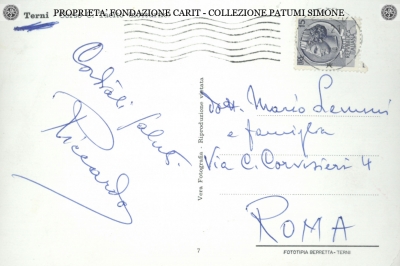 PROPRIETA' FONDAZIONE CARIT - COLLEZIONE PATUMI SIMONE
Terni
Cordiali saluti.
Riccardo
Vera Fotografia - Riproduzione vietata
dott. Mario Lemmi
e famiglia
Via C. Corvisieri 4
ROMA
7
FOTOTIPIA BERRETTA - TERNI